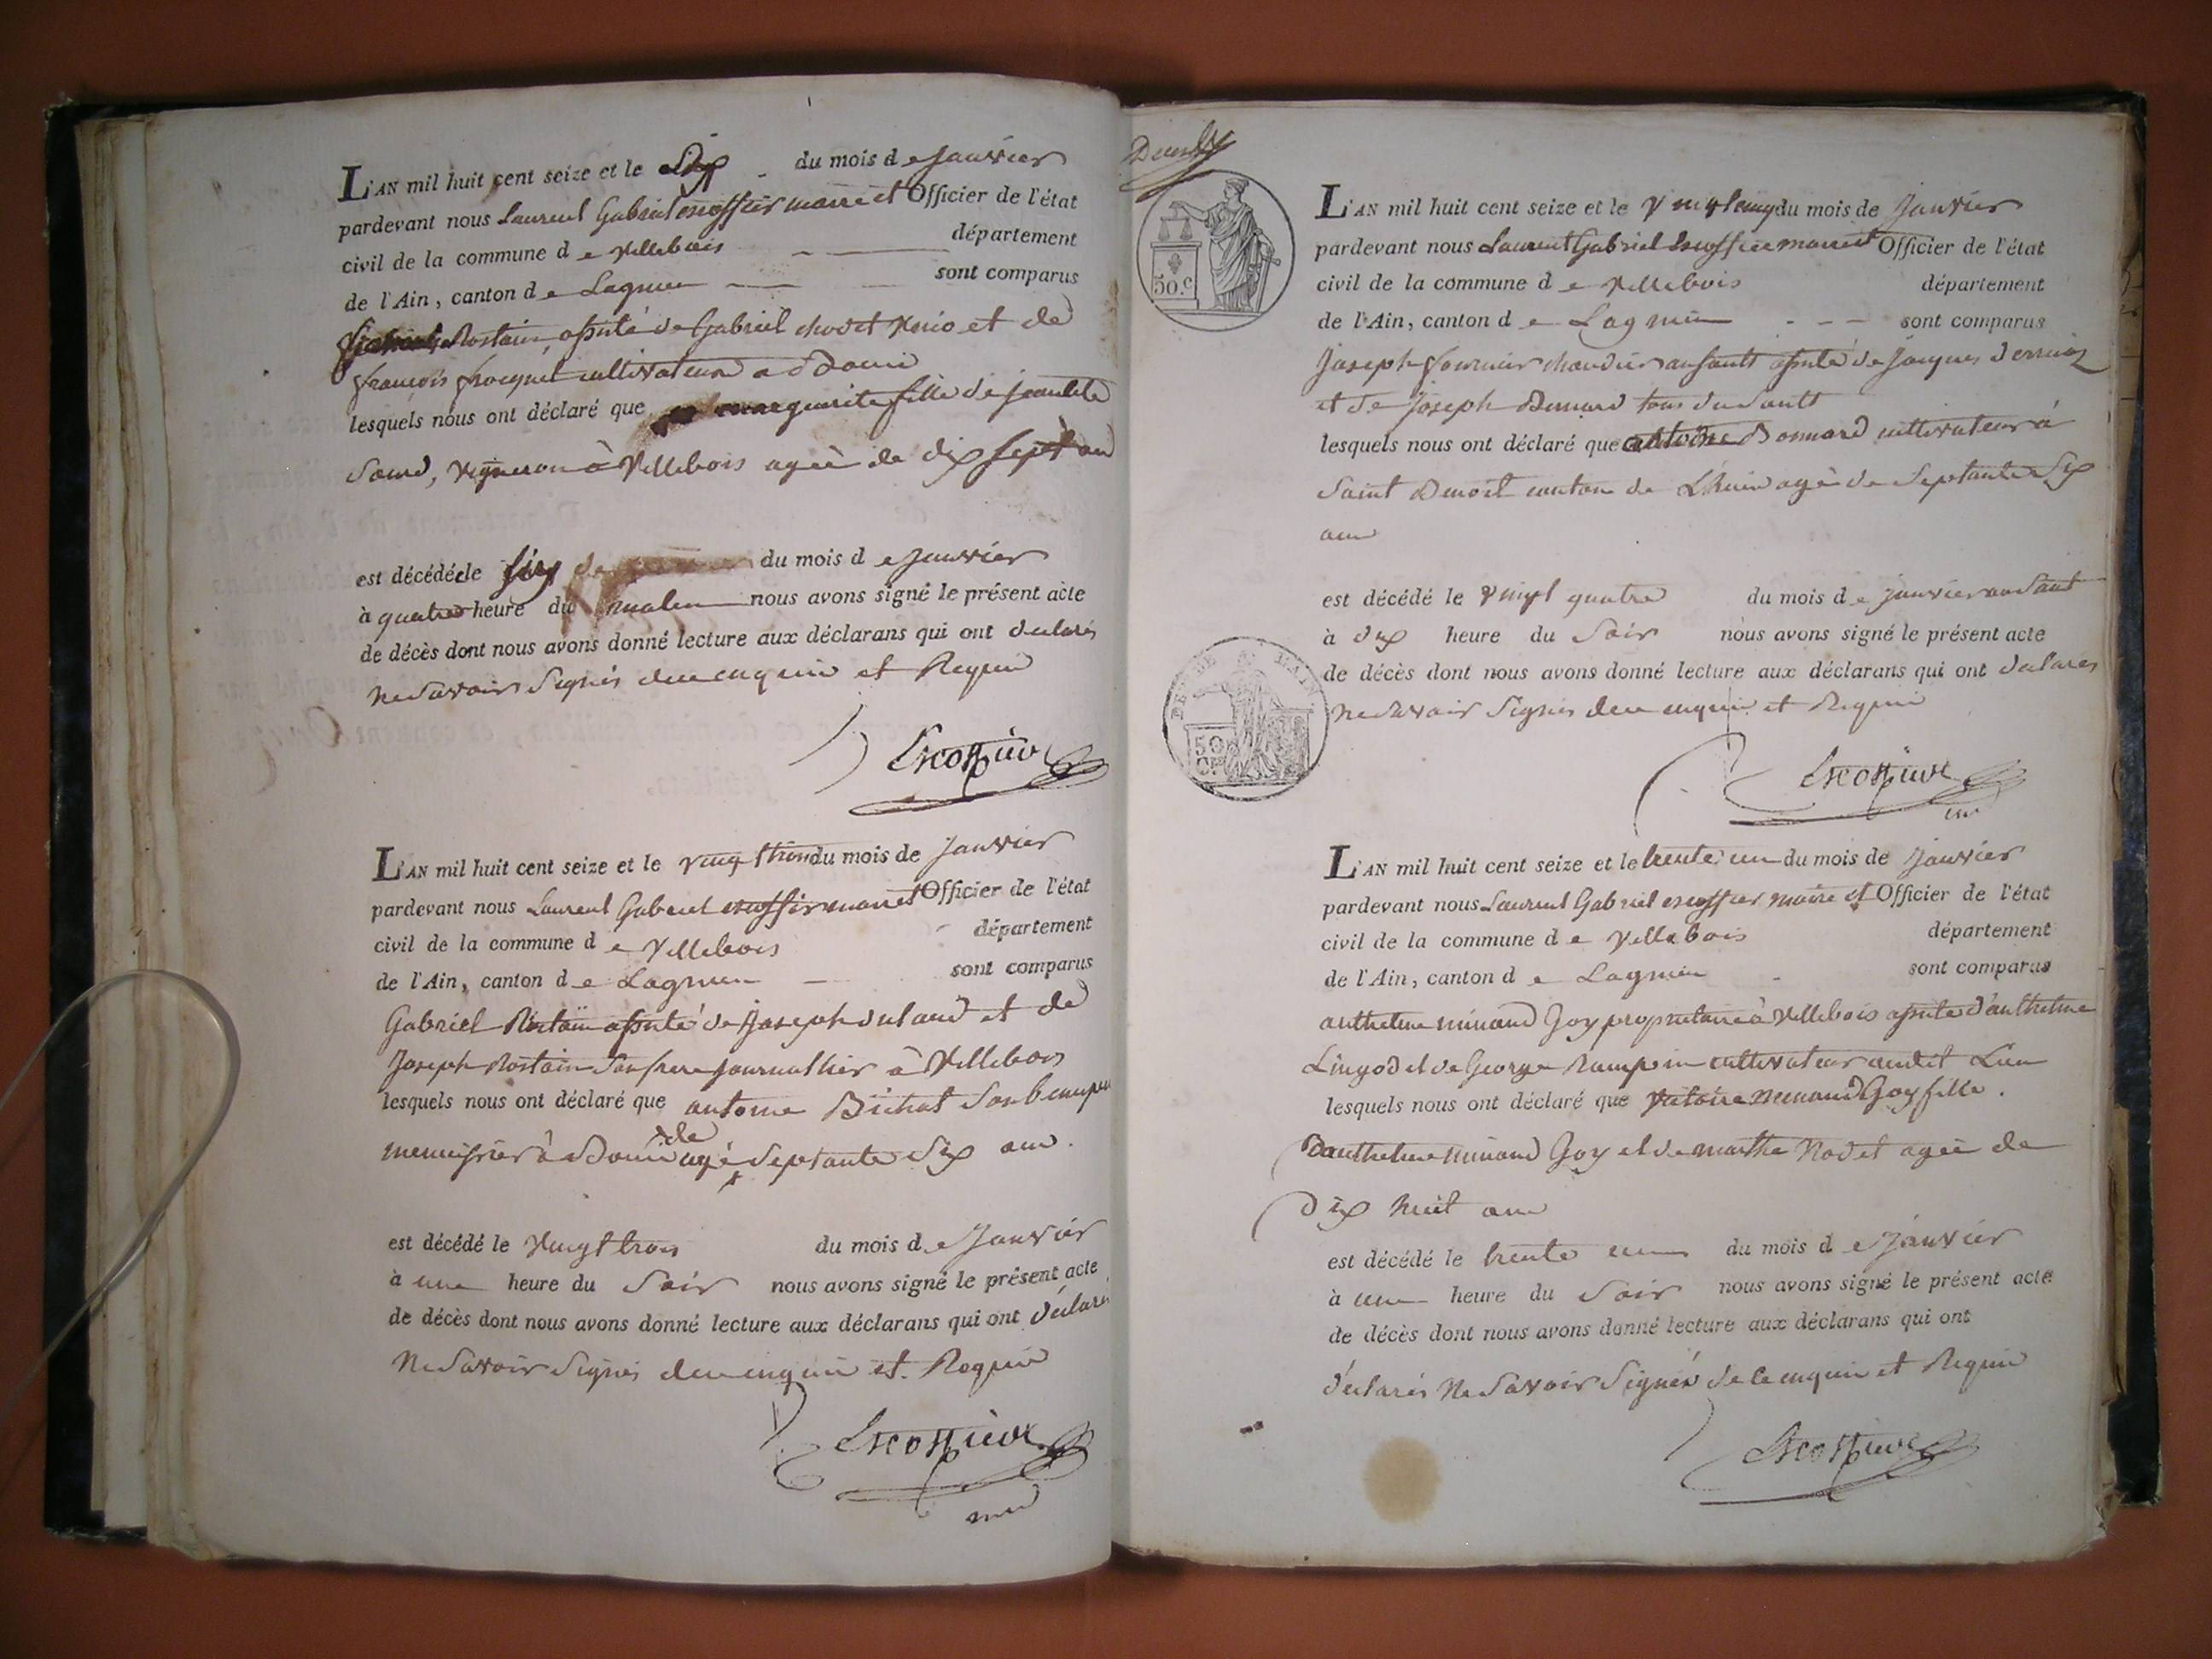 L'AN mil huit cent seize et le Six du mois de Janvier
pardevant nous Laurent Gabriel escoffier maire et Officier de l'état
civil de la commune de Villebois département
de l'Ain, canton de Lagnieu sont comparus
Rostain, assisté de Gabriel et de
françois cultivateurs a
lesquels nous ont déclaré que marguerite fille de
vigneron à Villebois agée de dix sept an
est décédée le du mois de Janvier
à quatre heure du matin nous avons signé le présent acte
de décès dont nous avons donné lecture aux déclarans qui ont declarés
ne Savoir Signés de ce enquis et Requis
Escoffier
L'AN mil huit cent seize et le vingt trois du mois de Janvier
pardevant nous Laurent Gabriel escoffier maire et Officier de l'état
civil de la commune de Villebois département
de l'Ain, canton de Lagnieu sont comparus
Gabriel Rostain assisté de Joseph et de
Joseph Rostain Son frere journallier à Villebois
lesquels nous ont déclaré que antoine Bichat Son beaupere
menuisier à agé de Septante Six ans
est décédé le Vingt trois du mois de Janvier
à une heure du Soir nous avons signé le présent acte
de décès dont nous avons donné lecture aux déclarans qui ont déclarés
Ne Savoir Signés de ce enquis et Requis
Escoffier
50.c
DEP. DE L'AIN
50
L'AN mil huit cent seize et le Vingt cinq du mois de Janvier
pardevant nous Laurent Gabriel Escoffier maire et Officier de l'état
civil de la commune de Villebois département
de l'Ain, canton de Lagnieu sont comparus
Joseph fournier au Sault assisté de Jacques
et de Joseph Bernard tous du Sault
lesquels nous ont déclaré que antoine Bonnard cultivateur à
Saint Benoit canton de Lhuis agé de Septante Six
ans
est décédé le Vingt quatre du mois de janvier au Sault
à dix heure du Soir nous avons signé le présent acte
de décès dont nous avons donné lecture aux déclarans qui ont declarés
ne Savoir Signés de ce enquis et Requis
Escoffier
L'AN mil huit cent seize et le trente un du mois de Janvier
pardevant nous Laurent Gabriel escoffier maire et Officier de l'état
civil de la commune de Villebois département
de l'Ain, canton de Lagnieu sont comparus
anthelme minand Goy proprietaire à Villebois assisté d'anthelme
Lingod et de George Rampin cultivateur audit Lieu
lesquels nous ont déclaré que Victoire minand Goy fille
D'anthelme minand Goy et de marthe Nodet agée de
dix huit ans
est décédé le trente un du mois de Janvier
à une heure du Soir nous avons signé le présent acte
de décès dont nous avons donné lecture aux déclarans qui ont
déclarés Ne Savoir Signés de ce enquis et Requis
Escoffier